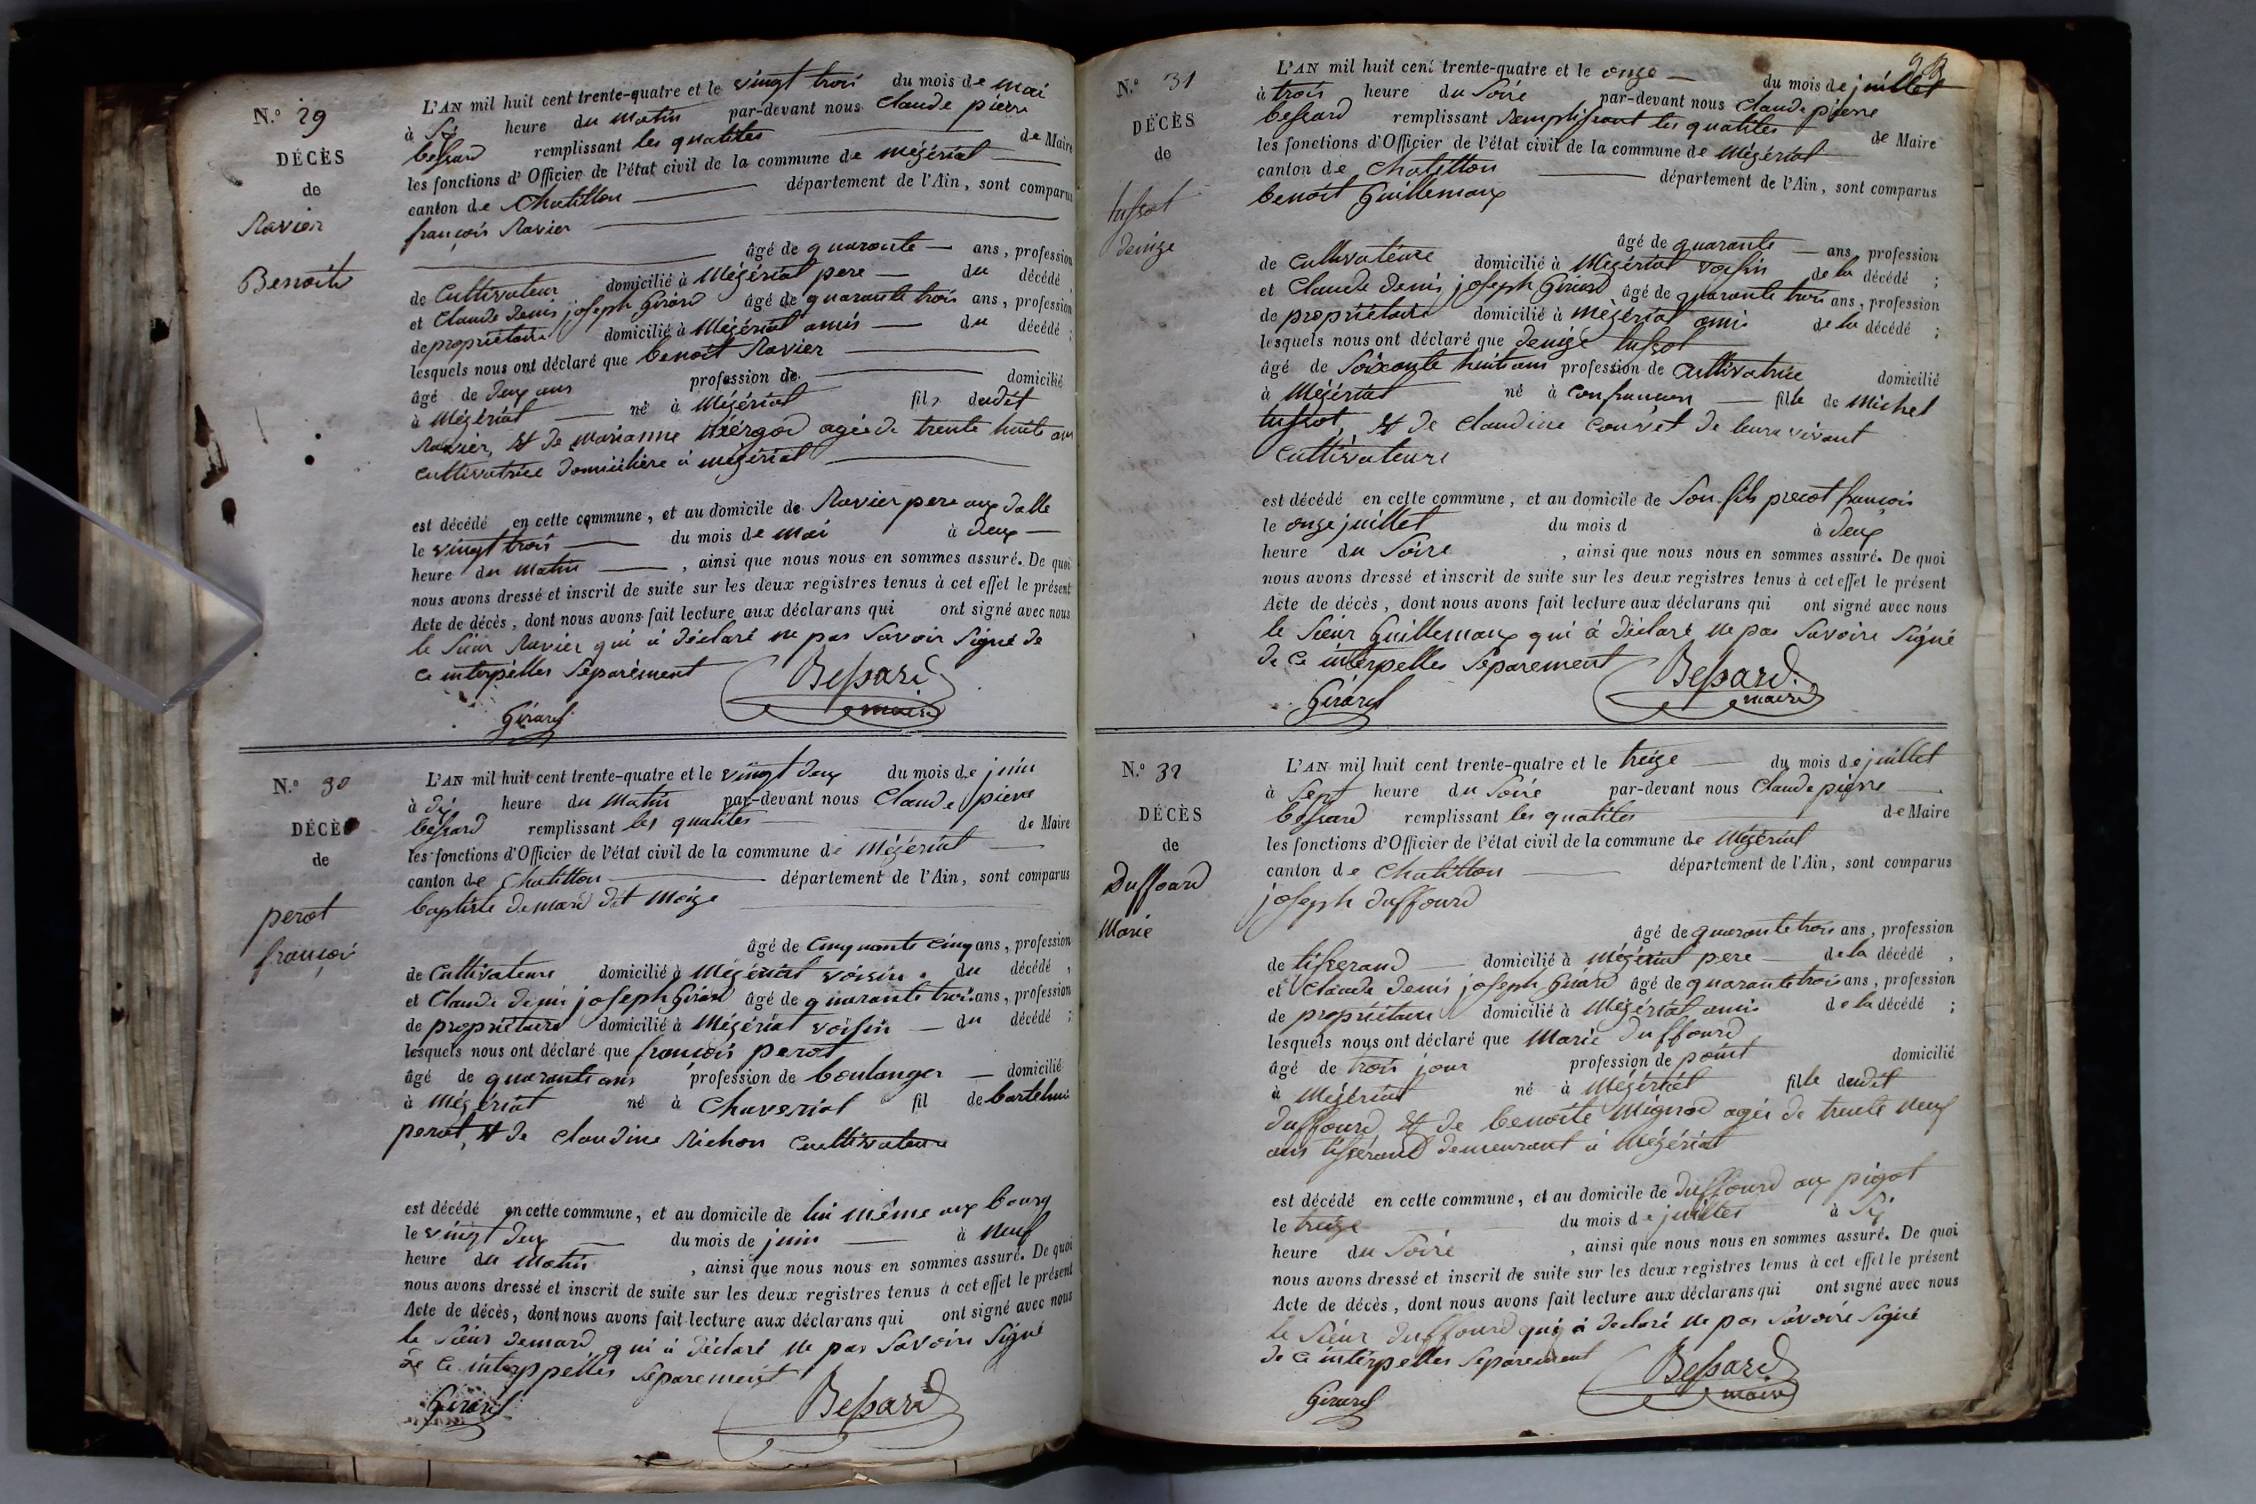 N.º 29
DÉCÈS
de
Ravier
Benoite
L'AN mil huit cent trente-quatre et le vingt trois du mois de mai
à Six heure du matin par-devant nous Claude pierre
bessard remplissant les qualites de Maire
les fonctions d'Officier de l'état civil de la commune de Mézériat
canton de Chatillon département de l'Ain, sont comparus
françois Ravier
âgé de quarante ans, profession
de Cultivateur domicilié à Mézériat pere du décédé,
et Claude Denis joseph Girard âgé de quarante trois ans, profession
de propriétaire domicilié à Mézériat amis du décédé ;
lesquels nous ont déclaré que benoit Ravier
âgé de deux ans profession de domicilié
à Mézériat né à Mézériat fils dudit
Ravier, et de Marianne agée de trente huit ans
cultivatrice Domiciliere à mézériat
est décédé en cette commune, et au domicile de Ravier pere aux dalle
le vingt trois du mois de Mai à Deux
heure du Matin , ainsi que nous nous en sommes assuré. De quoi
nous avons dressé et inscrit de suite sur les deux registres tenus à cet effet le présent
Acte de décès, dont nous avons fait lecture aux déclarans qui ont signé avec nous
le Sieur Ravier qui à Déclaré ne pas Savoir Signé de
ce interpelles Séparément Bessard
maire
Girard
N.º 30
DÉCÈS
de
perot
françoi
L'AN mil huit cent trente-quatre et le vingt deux du mois de juin
à dix heure du Matin par-devant nous Claude pierre
bessard remplissant les qualites de Maire
les fonctions d'Officier de l'état civil de la commune de Mézériat
canton de Chatillon département de l'Ain, sont comparus
baptiste Demard dit Moize
âgé de Cinquante cinq ans, profession
de Cultivateure domicilié à Mézériat voisin du décédé,
et Claude denis joseph Girard âgé de quarante trois ans, profession
de propriétaire domicilié à Mézériat voisin du décédé ;
lesquels nous ont déclaré que françois perot
âgé de quarante ans profession de boulanger domicilié
à Mézériat né à Chaveriat fil de bartelmi
perot, et de Claudine Richon Cultivateure
est décédé en cette commune, et au domicile de lui même aux bourg
le vingt deux du mois de juin à neuf
heure du Matin , ainsi que nous nous en sommes assuré. De quoi
nous avons dressé et inscrit de suite sur les deux registres tenus à cet effet le présent
Acte de décès, dont nous avons fait lecture aux déclarans qui ont signé avec nous
le Sieur Demard, qui à déclaré ne pas Savoire Signé
de ce interppelles Séparement
Girard Bessard
23
N.º 31
DÉCÈS
de
tussot
denize
L'AN mil huit cent trente-quatre et le onze du mois de juillet
à trois heure du Soire par-devant nous Claude pierre
bessard remplissant Remplissant les qualites de Maire
les fonctions d'Officier de l'état civil de la commune de Mézériat
canton de Chatillon département de l'Ain, sont comparus
benoit Guillemaux
âgé de quarante ans profession
de Cultivateure domicilié à Mézériat voisin de la décédé ;
et Claude Denis joseph Girard âgé de quarante trois ans, profession
de propriétaire domicilié à Mézériat ami de la décédé ;
lesquels nous ont déclaré que denize tussot
âgé de Soixante huit ans profession de Cultivatrice domicilié
à Mézériat né à Confrançon fille de Michel
tussot, et de Claudine Couvet de leure vivant
Cultivateure
est décédé en cette commune, et au domicile de Son fils françois
le onze juillet du mois d à deux
heure du Soire , ainsi que nous nous en sommes assuré. De quoi
nous avons dressé et inscrit de suite sur les deux registres tenus à cet effet le présent
Acte de décès, dont nous avons fait lecture aux déclarans qui ont signé avec nous
le Sieur Guillemaux qui à déclaré ne pas Savoire Signé
de ce interpelles Séparement Bessard
maire
Girard
N.º 32
DÉCÈS
de
Duffourd
Marie
L'AN mil huit cent trente-quatre et le treize du mois de juillet
à Sept heure du Soire par-devant nous Claude pierre
bessard remplissant les qualites de Maire
les fonctions d'Officier de l'état civil de la commune de Mézériat
canton de Chatillon département de l'Ain, sont comparus
joseph duffourd
âgé de quarante trois ans, profession
de tisserand domicilié à Mézériat pere de la décédé,
et Claude Denis joseph Girard âgé de quarante trois ans, profession
de propriétaire domicilié à Mézériat amis de la décédé ;
lesquels nous ont déclaré que Marie duffourd
âgé de trois jour profession de point domicilié
à Mézériat né à Mézériat fille dudit
duffourd et de benoite Mignod agés de trente neuf
ans tisserand demeurant à Mézériat
est décédé en cette commune, et au domicile de duffourd aux pigot
le treize du mois de juilles à Six
heure du Soire , ainsi que nous nous en sommes assuré. De quoi
nous avons dressé et inscrit de suite sur les deux registres tenus à cet effet le présent
Acte de décès, dont nous avons fait lecture aux déclarans qui ont signé avec nous
le Sieur duffourd qui à declaré ne pas Savoire Signé
de ce interpelles Séparement Bessard
maire
Girard